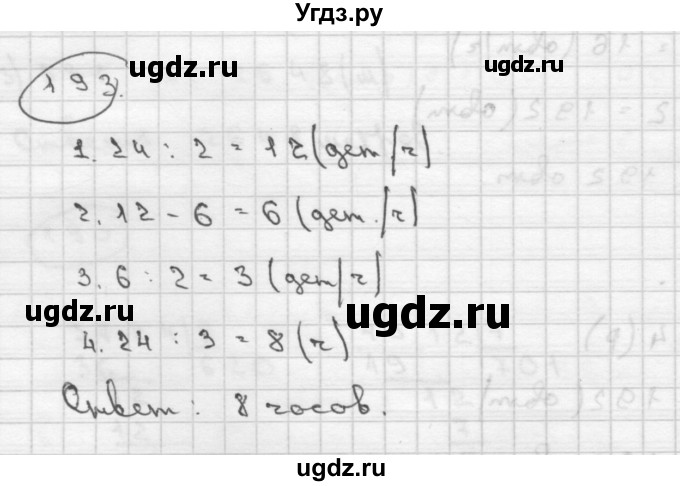 Угдз.ру
193.
ugdz.ru
ugdz.ru
1. 24 : 2 = 12 (дет/ч)
2. 12 - 6 = 6 (дет./ч)
3. 6 : 2 = 3 (дет/ч)
ugdz.ru
ugdz.ru
4. 24 : 3 = 8 (ч)
Ответ: 8 часов.
ugdz.ru
ugdz.ru